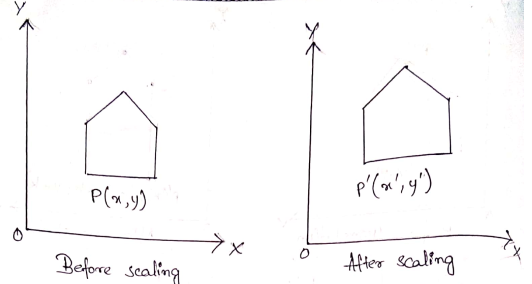 Y
P(x,y)
O
X
Before scaling
Y
P'(x',y')
O
X
After scaling